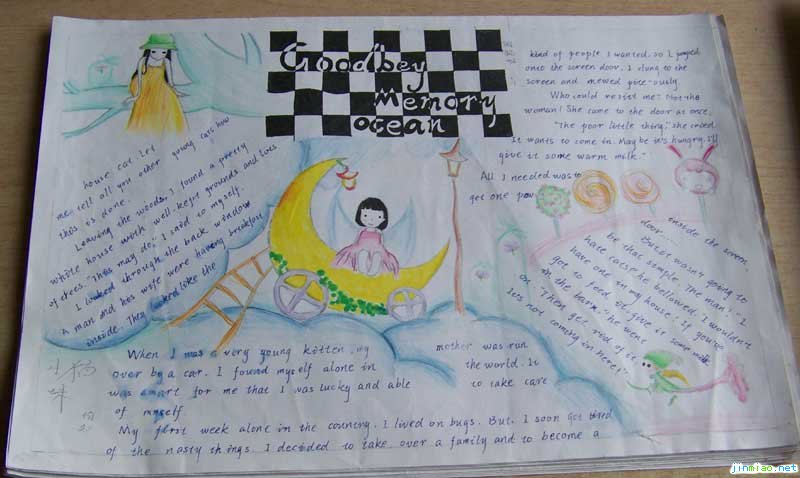 Goodbey
Memory
ocean
When I was a very young kitten, my mother was run
over by a car. I found myself alone in the world. It
was smart for me that I was lucky and able to take care
of myself
My first week alone in the country. I lived on bugs. But, I soon got tired
of the nasty things. I decided to take over a family and to become a
house cat. Let
me tell all you other young cats how
this is done.
Leaving the woods, I found a pretty
white house with well-kept grounds and lots
of trees. "This may do," I said to myself.
I looked through the back window
A man and his wife were having breakfast
inside. They looked like the
kind of people I wanted. so I jumped
onto the screen door. I clung to the
screen and mewed pite-ously
Who could resist me? Not the
woman! She came to the door at once.
"The poor little thing," she cooed.
It wants to come in. Maybe it's hungry. I'll
give it some warm milk."
All I needed was to
get one paw
inside the screen
door......
But it wasn't going to
be that simple. The man's "I
hate cats" he bellowed. I wouldn't
have one in my house! If you've
got to feed it, give it some milk
in the barn." he went
on. "Then get rid of it
It's not coming in here!"
jinmiao.net